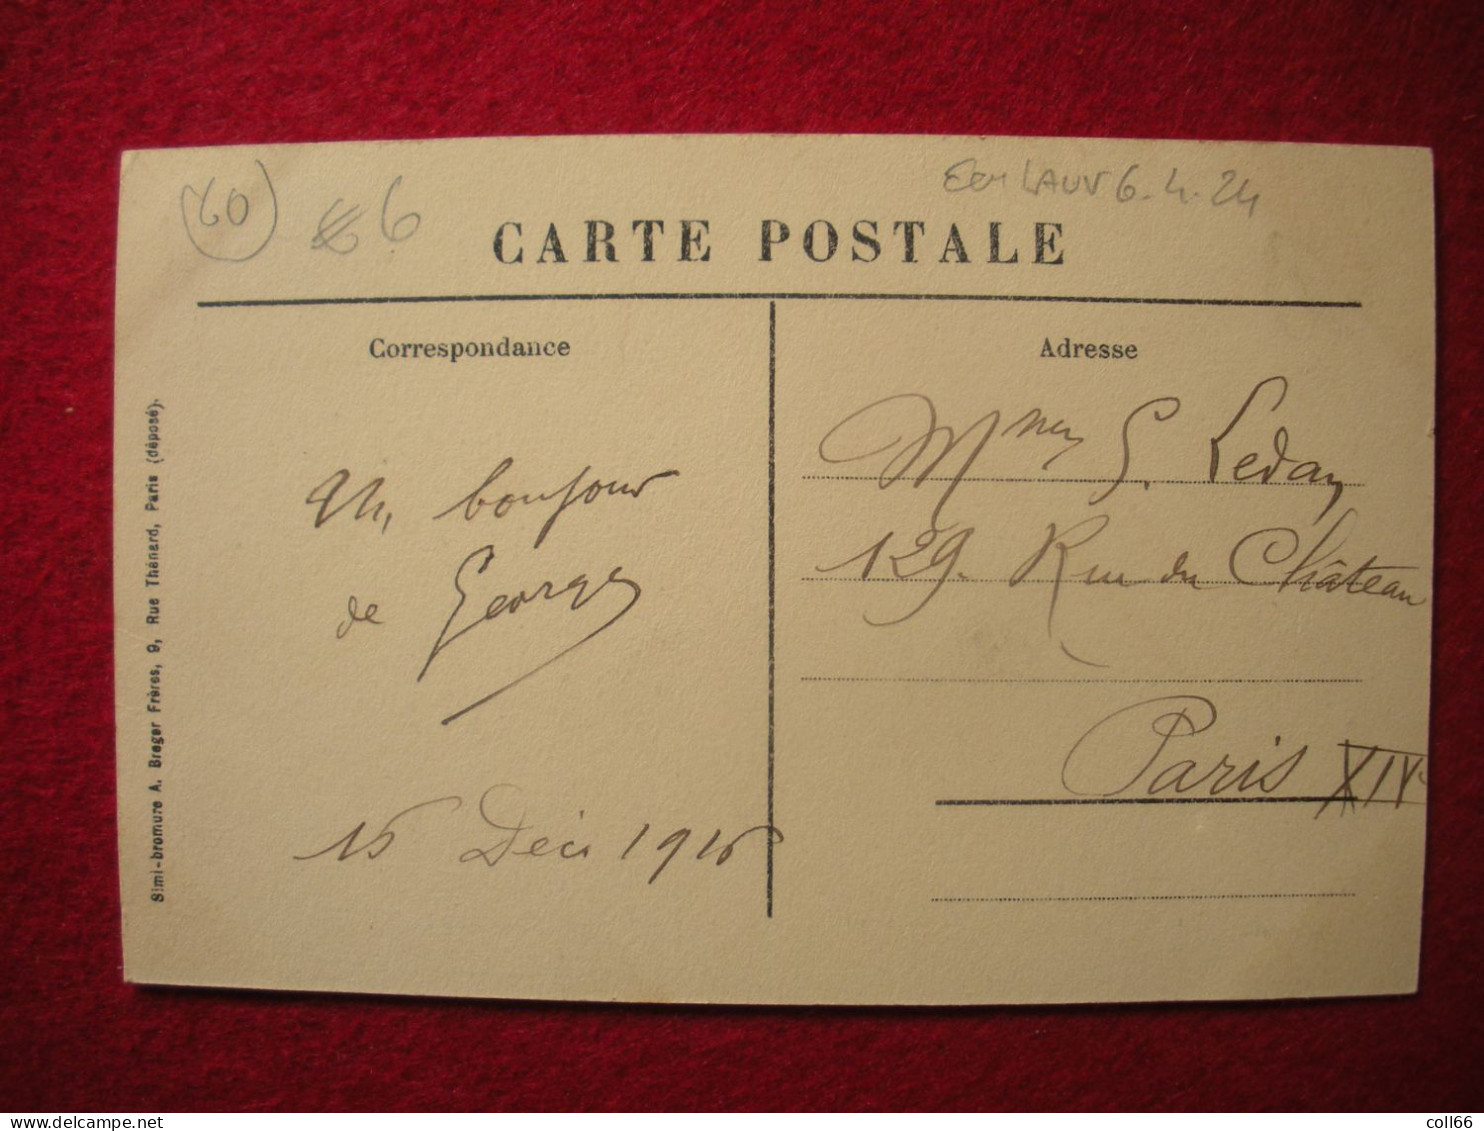 60 6
6.4.24
CARTE POSTALE
Correspondance
Un bonjour
de Georges
15 Déc. 1916
Adresse
Mme G. Ledan
129 Rue du Château
Paris XIVe
Simi-bromure A. Breger Frères, 9, Rue Thénard, Paris (déposé).
delcampe.net
coll66